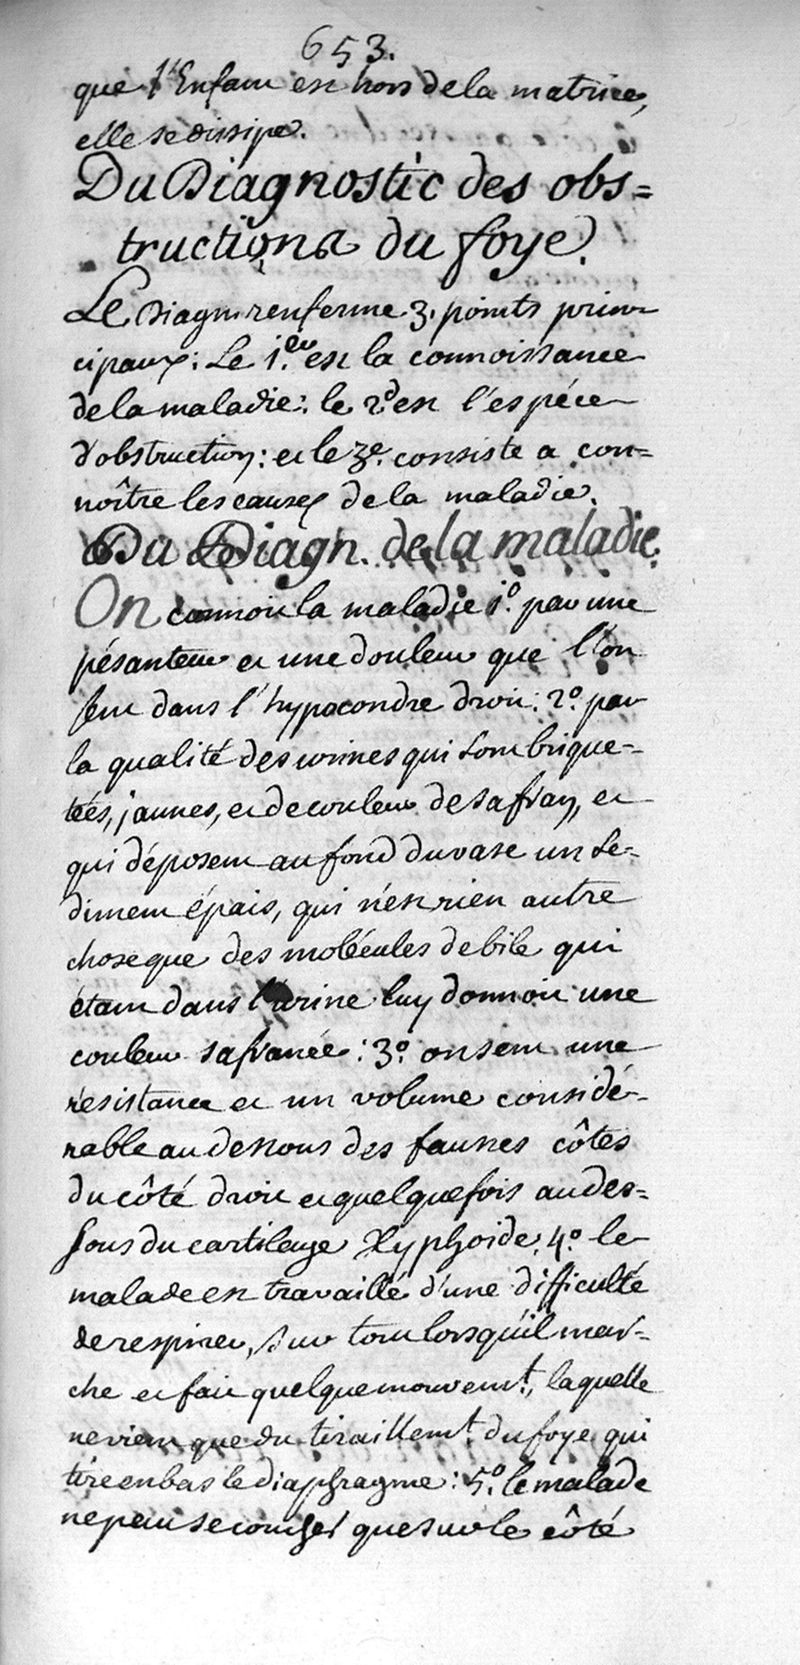 653.
que l'Enfant est hors de la matrice,
elle se dissipe.
Du Diagnostic des obs=
tructions du foye.
Le Diagn. renferme 3. points prin-
cipaux: Le 1.er est la connoissance
de la maladie: le 2.d est l'espéce
d'obstruction: et le 3e. consiste a con=
noître les causes de la maladie.
Du Diagn. de la maladie.
On connoit la maladie 1.o par une
pésanteur et une douleur que l'on
sent dans l'hypocondre droit: 2.o par
la qualité des urines qui sont brique-
tées, jaunes, et de couleur de safran, et
qui déposent au fond du vase un se-
diment épais, qui n'est rien autre
chose que des molécules de bile qui
étant dans l'urine luy donnoit une
couleur safranée: 3.o on sent une
résistance et un volume considé-
rable au dessous des fausses côtes
du côté droit et quelquefois au des=
sous du cartilage Xyphoide. 4.o le
malade est travaillé d'une difficulté
de respirer, sur tout lorsqu'il mar-
che et fait quelque mouvemt., laquelle
ne vient que du tiraillemt. du foye qui
tire en bas le diaphragme: 5.o le malade
ne peut se coucher que sur le côté